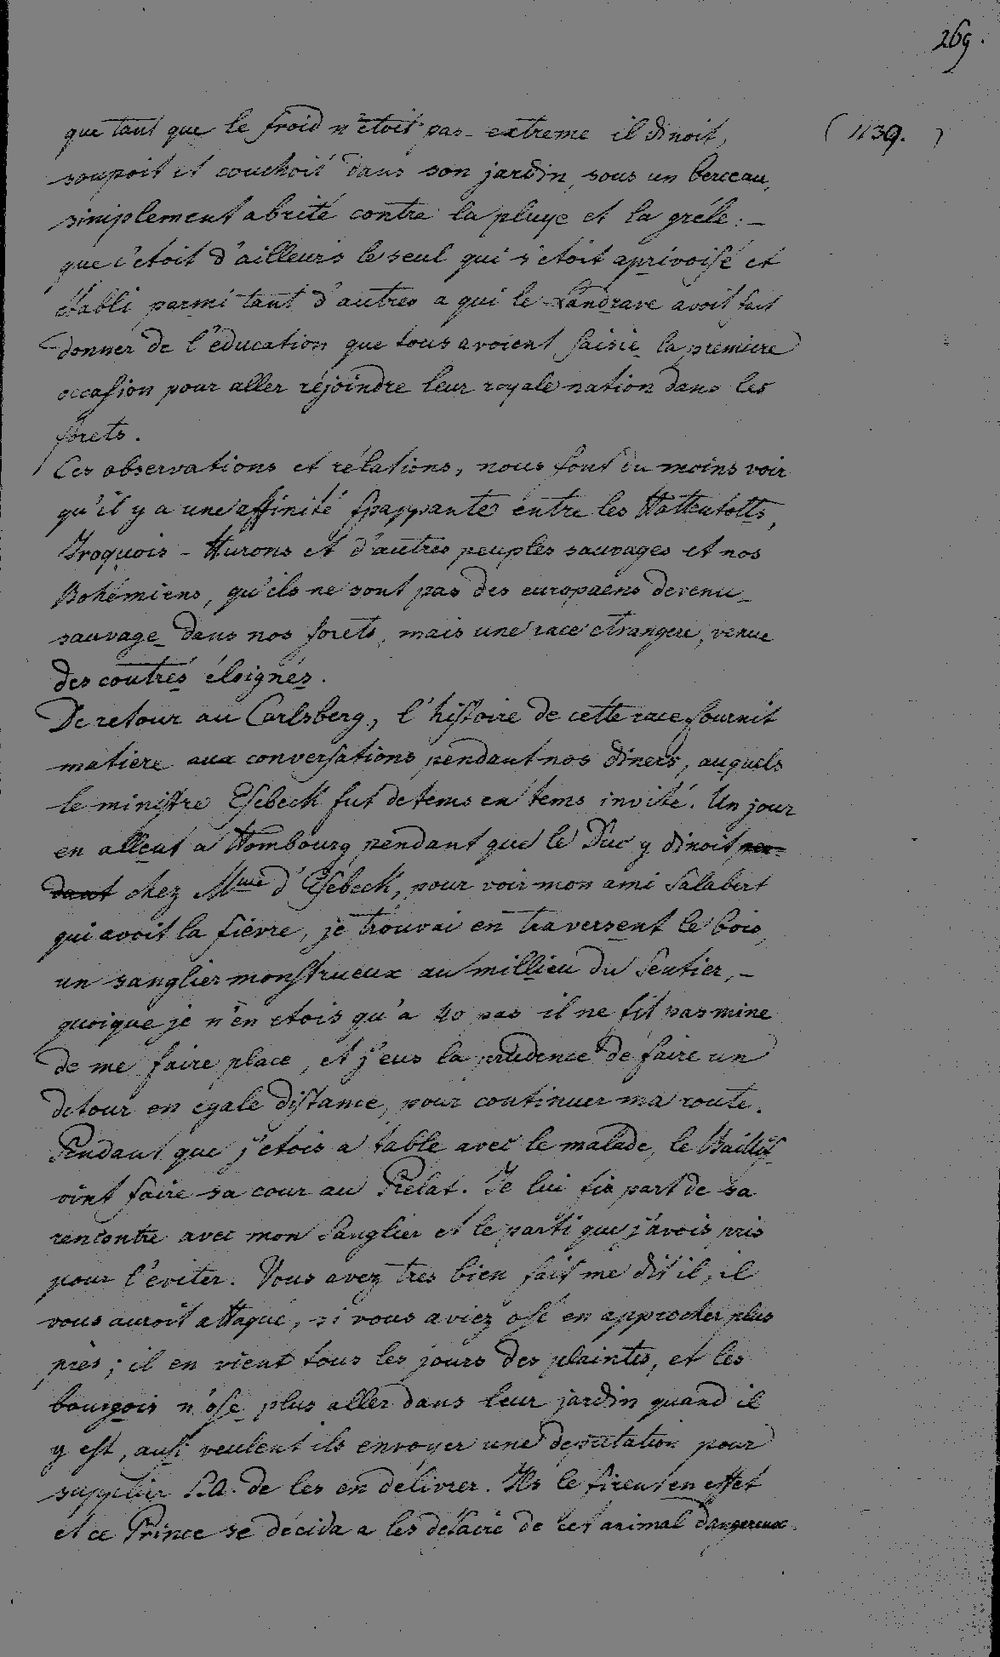 269.
(1139.)
que tant que le froid n'étoit pas extreme il dinoit,
soupoit et couchoit dans son jardin, sous un berceau,
simplement abrité contre la pluye et la gréle: –
que c'étoit d'ailleurs le seul qui s'étoit aprivoisé et
établi parmi tant d'autres a qui le Landrave avoit fait
donner de l'éducation que tous avoient saisie la premiere
occasion pour aller réjoindre leur royale nation dans les
forets.
Ces observations et rélations, nous font du moins voir
qu'il y a une affinité frappante entre les Hottentotts,
Iroquois – Hurons et d'autres peuples sauvages et nos
Bohémiens, qu'ils ne sont pas des européens devenu
sauvage dans nos forets, mais une race etrangere, venue
des coutrés éloignés.
De retour au Carlsberg, l'histoire de cette race fournit
matiere aux conversations pendant nos diners, auquels
le ministre Esebeck fut de tems en tems invité. Un jour
en allent a Hombourg pendant que le Duc y dinoit pen-
dant chez Mme d'Esebeck, pour voir mon ami Salabert
qui avoit la fiévre, je trouvai en traversent le bois,
un sanglier monstrueux au millieu du sentier, –
quoique je n'en etois qu'a 20 pas il ne fit pas mine
de me faire place, et j'eus la prudence de faire un
detour en egale distance, pour continuer ma route.
Pendant que j'etois a table avec le malade, le Baillif
vint faire sa cour au Prelat. Je lui fis part de sa
rencontre avec mon Sanglier et le parti que j'avois pris
pour l'éviter. Vous avez tres bien fait me dit il, il
vous auroit attaqué, si vous aviez osé en approcher plus
près; il en vient tous les jours des plaintes, et les
bourgois n'ose plus aller dans leur jardin quand il
y est, ausi veulent ils envoyer une deputation pour
supplier S.A. de les en délivrer. Ils le firent en effet
et ce Prince se décida a les défaire de cet animal dangereux.